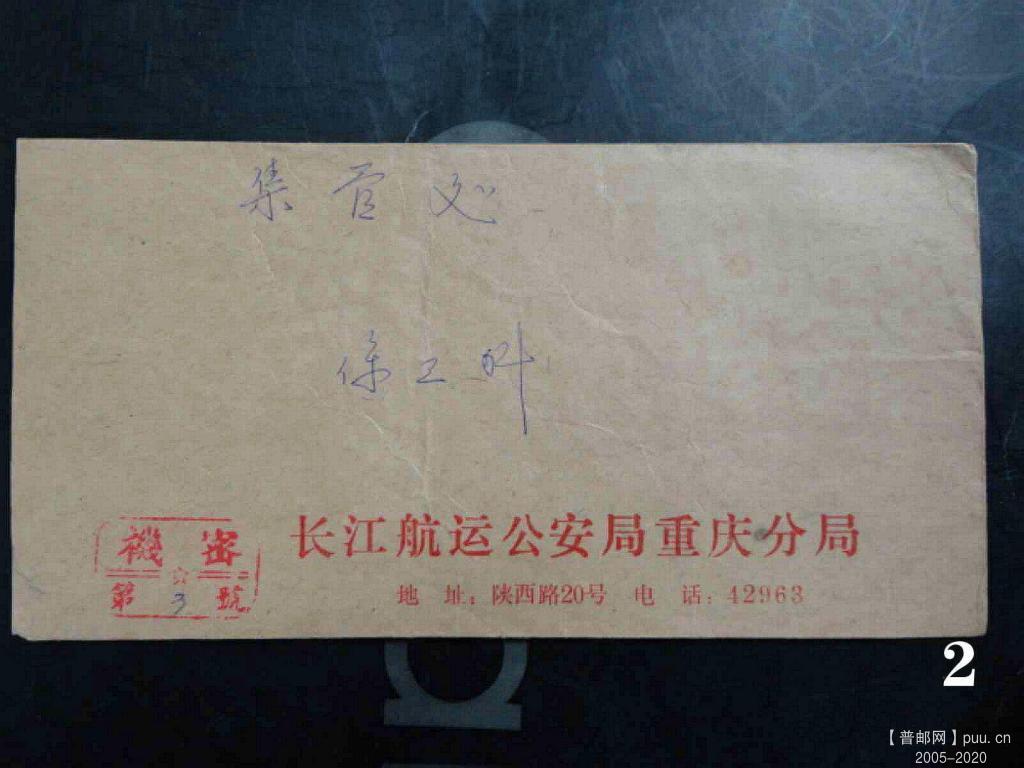 集管处
保卫科
機密
第3號
长江航运公安局重庆分局
地 址：陕西路20号 电 话：42963
2
【普邮网】puu.cn
2005-2020